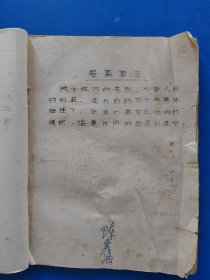 最高指示
成千成万的先烈，为着人民
的利益，在我们的前头英勇地
牺牲了，让我们高举起他们的
旗帜，踏着他们的血迹前进吧